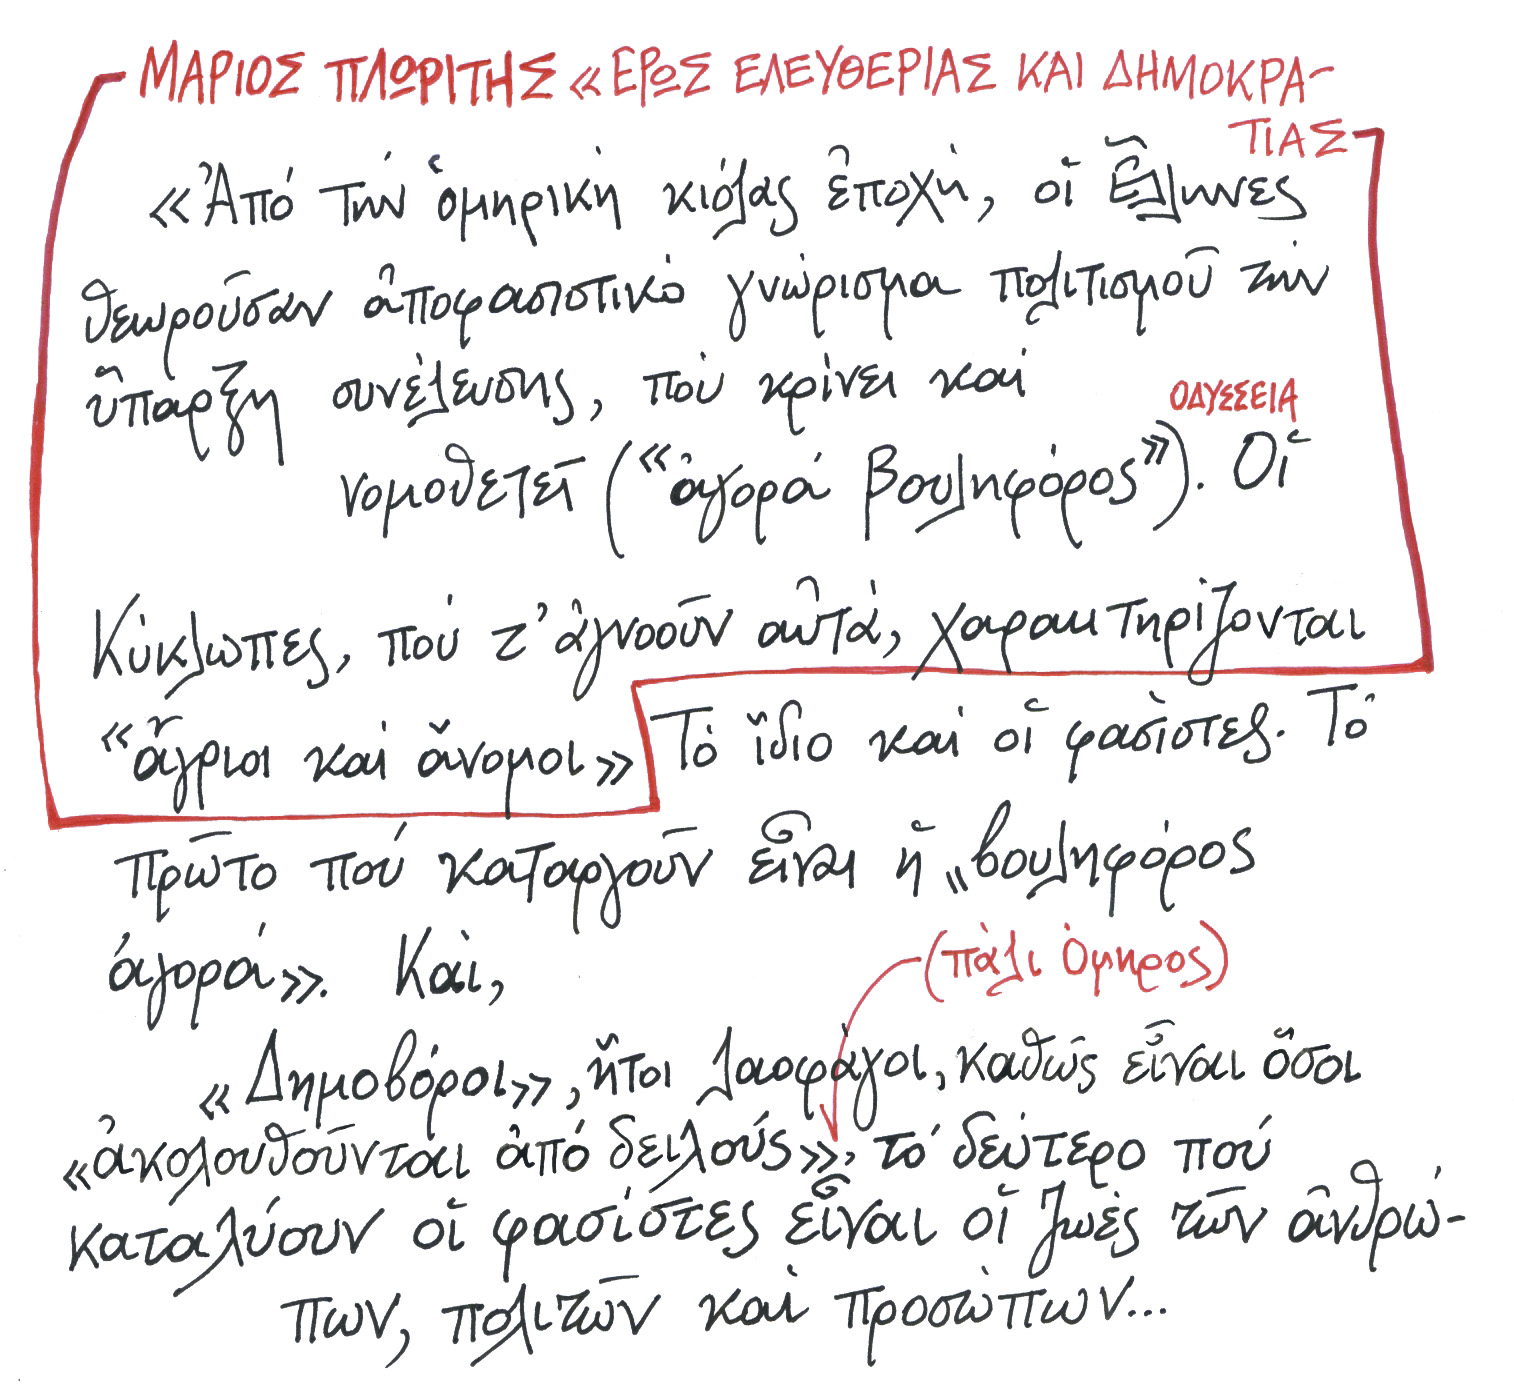 ΜΑΡΙΟΣ ΠΛΩΡΙΤΗΣ «ΕΡΩΣ ΕΛΕΥΘΕΡΙΑΣ ΚΑΙ ΔΗΜΟΚΡΑ-
ΤΙΑΣ
«Ἀπό τήν ὁμηρική κιόλας ἐποχή, οἱ Ἕλληνες
θεωροῦσαν ἀποφασιστικό γνώρισμα πολιτισμοῦ τήν
ὕπαρξη συνέλευσης, πού κρίνει καί
ΟΔΥΣΣΕΙΑ
νομοθετεῖ («ἀγορά βουληφόρος»). Οἱ
Κύκλωπες, πού τ' ἀγνοοῦν αὐτά, χαρακτηρίζονται
«ἄγριοι καί ἄνομοι» Τό ἴδιο καί οἱ φασίστες. Τό
πρῶτο πού καταργοῦν εἶναι ἡ «βουληφόρος
ἀγορά». Καί,
(πάλι Ὅμηρος)
«Δημοβόροι», ἤτοι λαοφάγοι, καθώς εἶναι ὅσοι
«ἀκολουθοῦνται ἀπό δειλούς», τό δεύτερο πού
καταλύουν οἱ φασίστες εἶναι οἱ ζωές τῶν ἀνθρώ-
πων, πολιτῶν καί προσώπων...